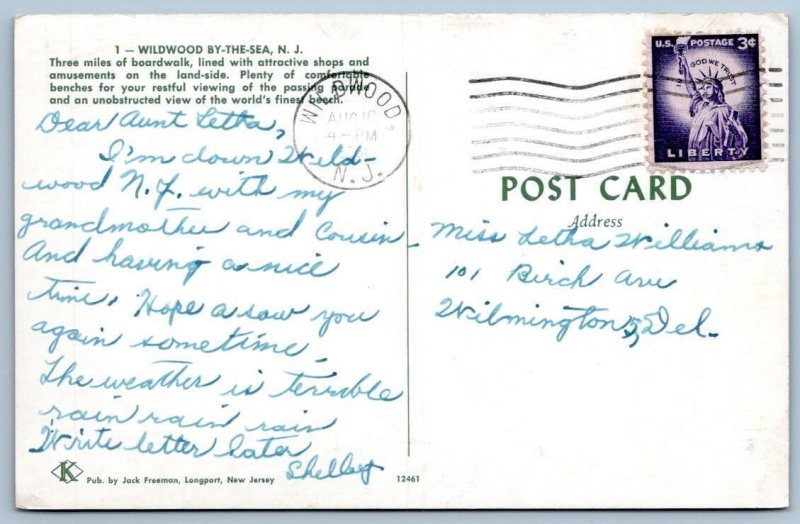 1 — WILDWOOD BY-THE-SEA, N. J.
Three miles of boardwalk, lined with attractive shops and
amusements on the land-side. Plenty of comfortable
benches for your restful viewing of the passing parade
and an unobstructed view of the world's finest beech.
Dear Aunt Letha,
I'm down Wild-
wood N.J. with my
grandmother and Cousin
And having a nice
time. Hope a saw you
again sometime.
The weather is terrible
rain rain rain
Write letter later
Shelley
K
Pub. by Jack Freeman, Longport, New Jersey
12461
WILDWOOD,
AUG
4-PM
N.J.
U.S. POSTAGE 3¢
IN GOD WE TRUST
LIBERTY
POST CARD
Address
Miss Letha Williams
101 Birch Ave
Wilmington 5, Del.